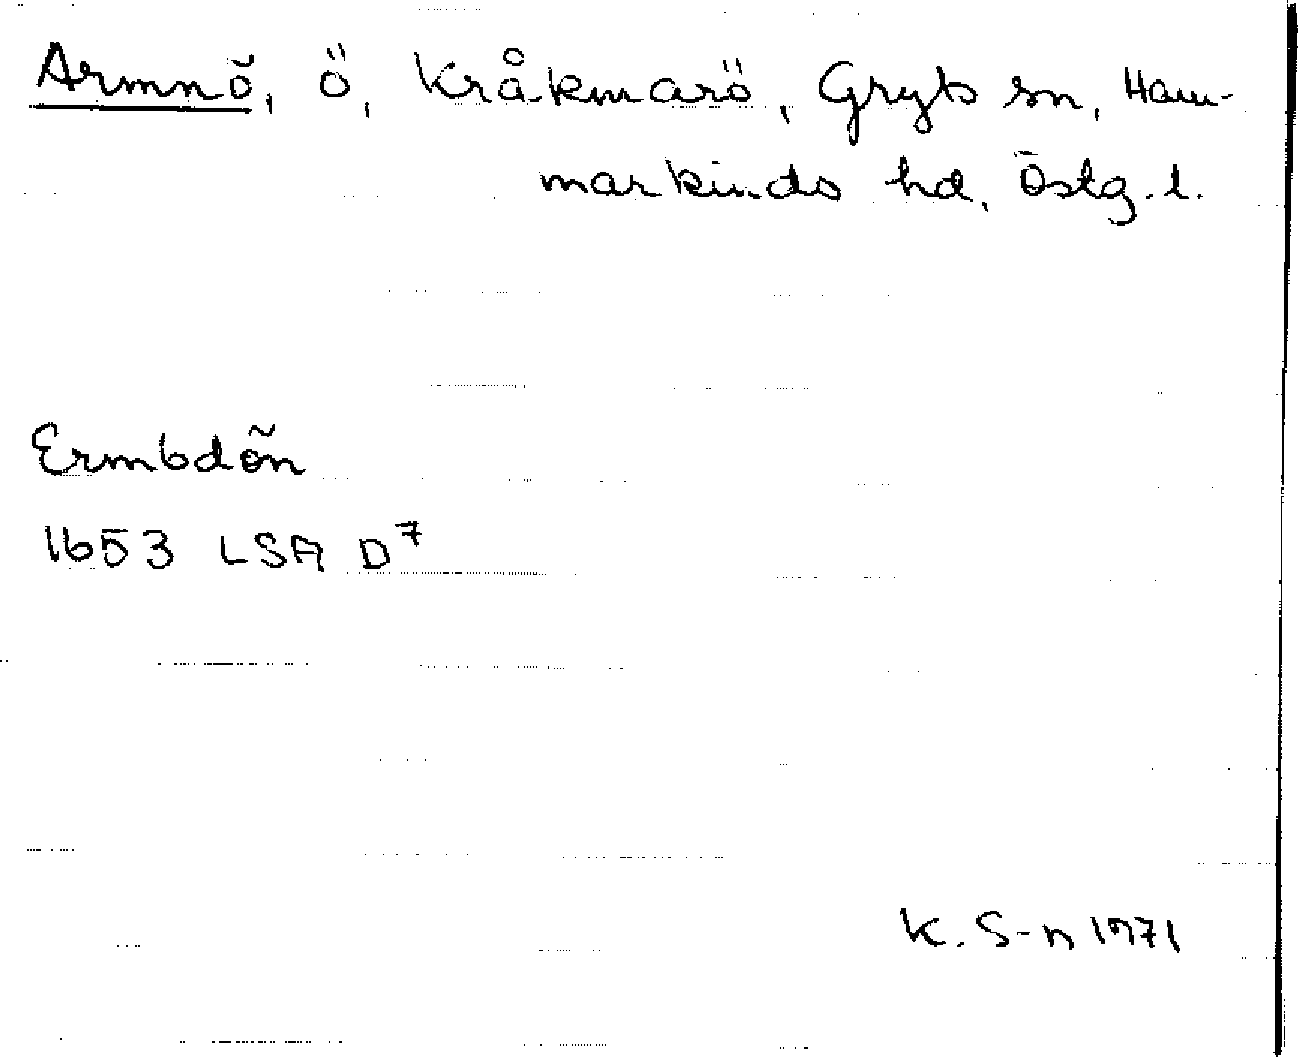 Armnö, ö, Kråkmarö, Gryts sn, Ham-
markinds hd, Östg.l.
Ermbdõn
1653 LSA D⁷
K. S-n 1971